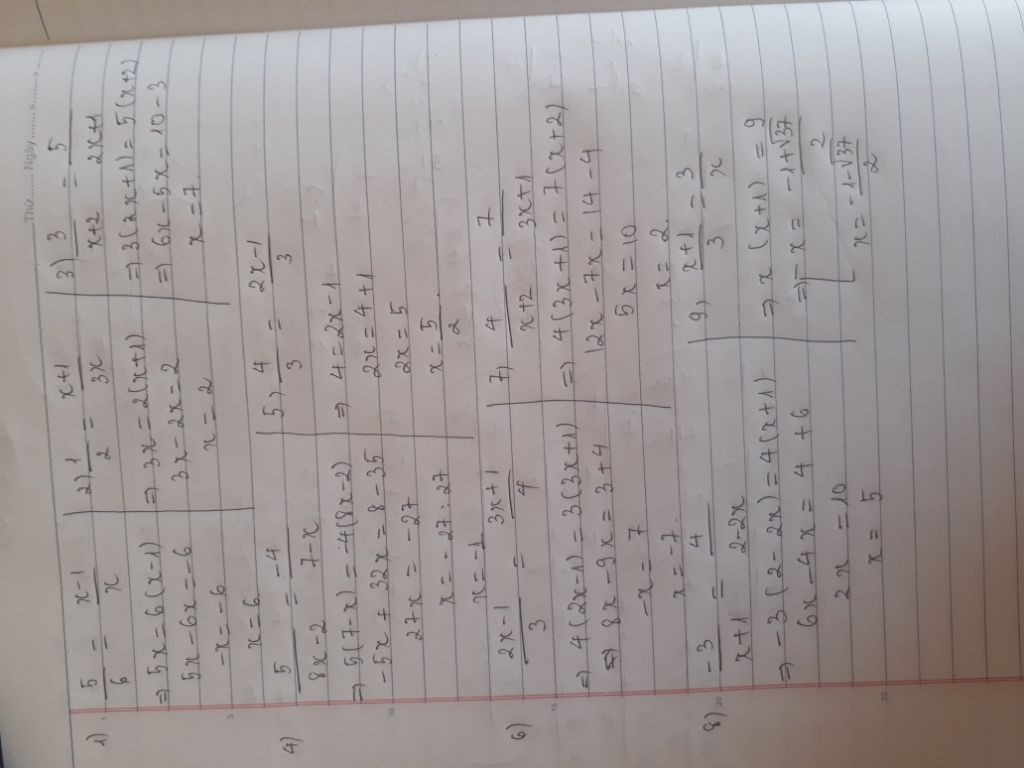 Thứ...... Ngày..............
1) 5/6 = x-1/x
=> 5x = 6(x-1)
5x - 6x = -6
-x = -6
x = 6
2) 1/2 = x+1/3x
=> 3x = 2(x+1)
3x - 2x = 2
x = 2
3) 3/x+2 = 5/2x+1
=> 3(2x+1) = 5(x+2)
=> 6x - 5x = 10 - 3
x = 7
4) 5/8x-2 = -4/7-x
=> 5(7-x) = -4(8x-2)
-5x + 32x = 8 - 35
27x = -27
x = -27:27
x = -1
5) 4/3 = 2x-1/3
=> 4 = 2x - 1
2x = 4+1
2x = 5
x = 5/2
6) 2x-1/3 = 3x+1/4
=> 4(2x-1) = 3(3x+1)
=> 8x - 9x = 3+4
-x = 7
x = -7.
7) 4/x+2 = 7/3x+1
=> 4(3x+1) = 7(x+2)
12x - 7x = 14 - 4
5x = 10
x = 2.
8) -3/x+1 = 4/2-2x
=> -3(2-2x) = 4(x+1)
6x - 4x = 4 + 6
2x = 10
x = 5
9) x+1/3 = 3/x
=> x(x+1) = 9
=> [ x = -1+√37/2
x = -1-√37/2